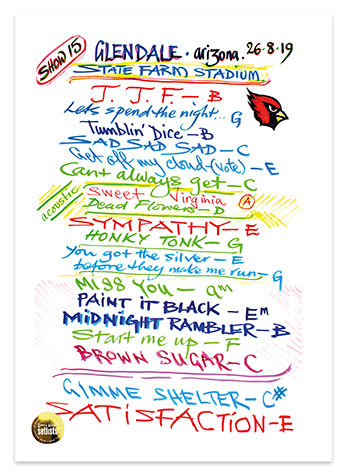 SHOW 15
GLENDALE · arizona. 26·8·19
STATE FARM STADIUM
J. J. F. – B
Lets spend the night... G
Tumblin' Dice – B
SAD SAD SAD – C
Get off my cloud – (vote) – E
Can't always get – C
acoustic
Sweet Virginia A
Dead Flowers – D
SYMPATHY – E
HONKY TONK – G
You got the silver – E
before they make me run – G
MISS YOU – am
PAINT IT BLACK – Em
MIDNIGHT RAMBLER – B
Start me up – F
BROWN SUGAR – C
GIMME SHELTER – C#
SATISFACTION – E
setlists